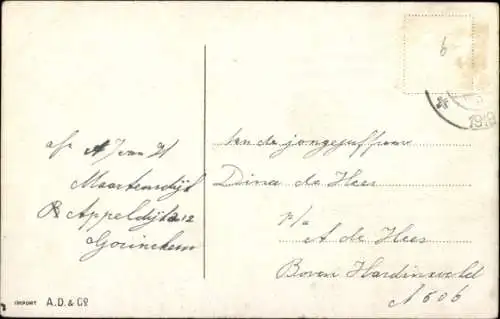 afz A J van W
Maartensdijk
R Appeldijk 212
Gorinchem
Aan de jongejuffrouw
Dina de Hees
p/a
A de Hees
Boven Hardinxveld
A 506
6-
1919
IMPORT A.D. & Co